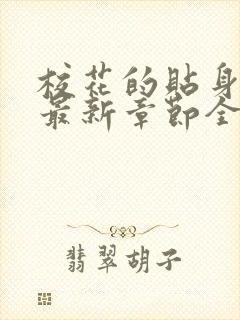 校花的贴身
最新章节全
翡翠胡子